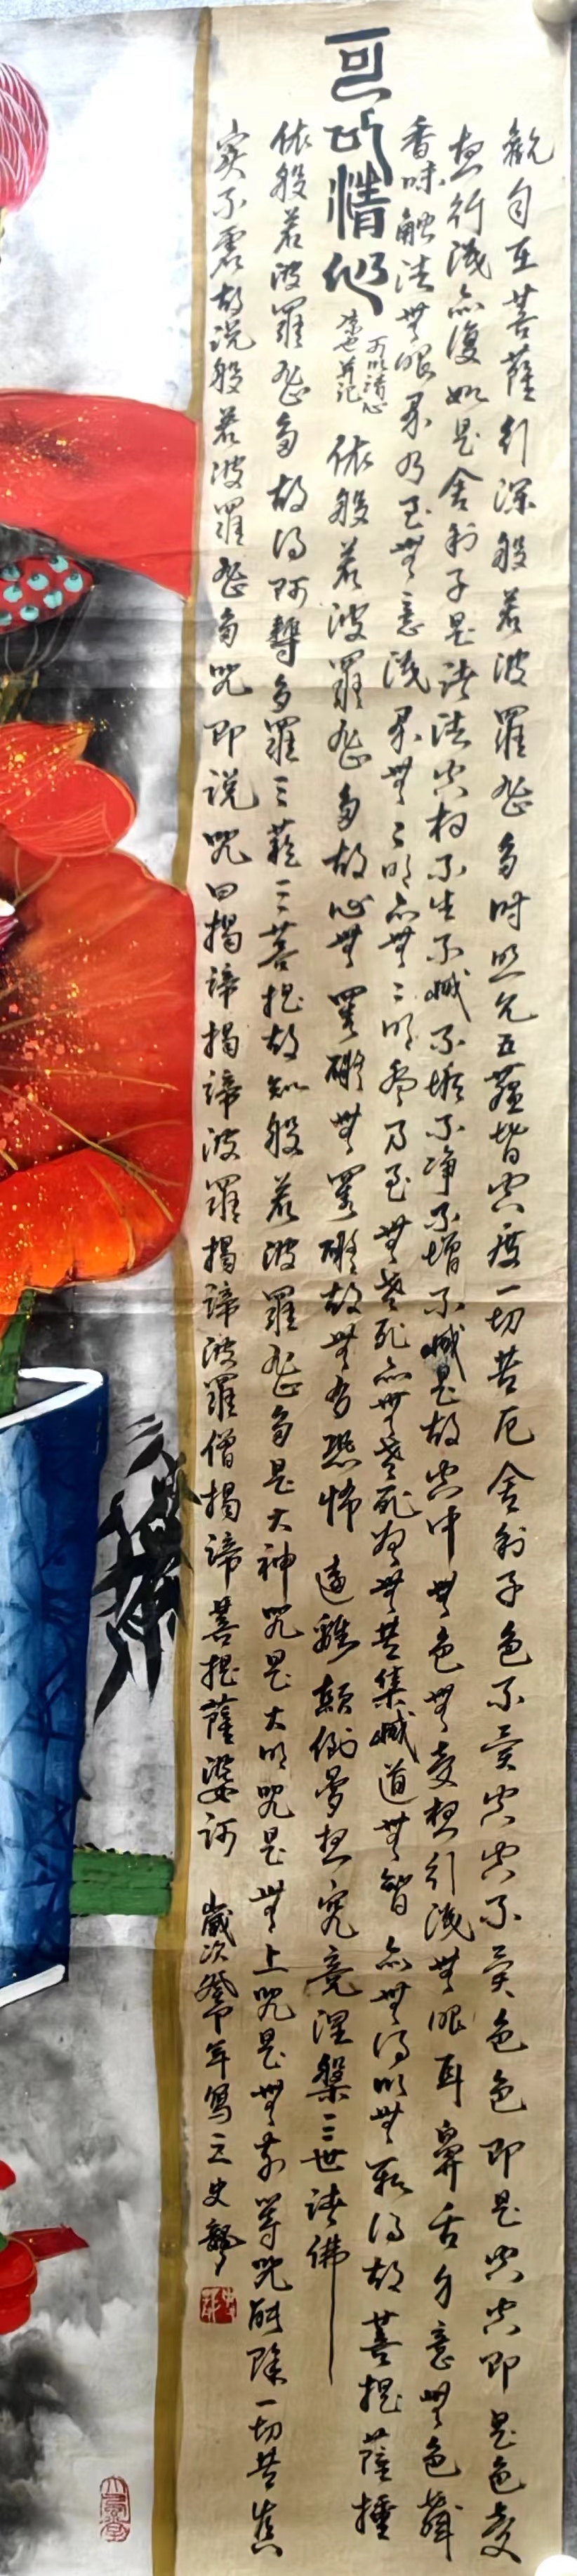 觀自在菩薩行深般若波羅蜜多時照見五蘊皆空度一切苦厄舍利子色不異空空不異色色即是空空即是色受
想行識亦復如是舍利子是諸法空相不生不滅不垢不净不增不減是故空中無色無受想行識無眼耳鼻舌身意無色聲
香味觸法無眼界乃至無意識界無〻明亦無〻明盡乃至無老死亦無老死盡無苦集滅道無智亦無得以無所得故菩提薩埵
可以清心
可以清心
也并记
依般若波羅蜜多故心無罣礙無罣礙故無有恐怖遠離顛倒夢想究竟涅槃三世諸佛
依般若波羅蜜多故得阿耨多羅三藐三菩提故知般若波羅蜜多是大神咒是大明咒是無上咒是無等等咒能除一切苦真
實不虛故说般若波羅蜜多咒即说咒曰揭諦揭諦波羅揭諦波羅僧揭諦菩提薩婆訶 歲次年寫之史